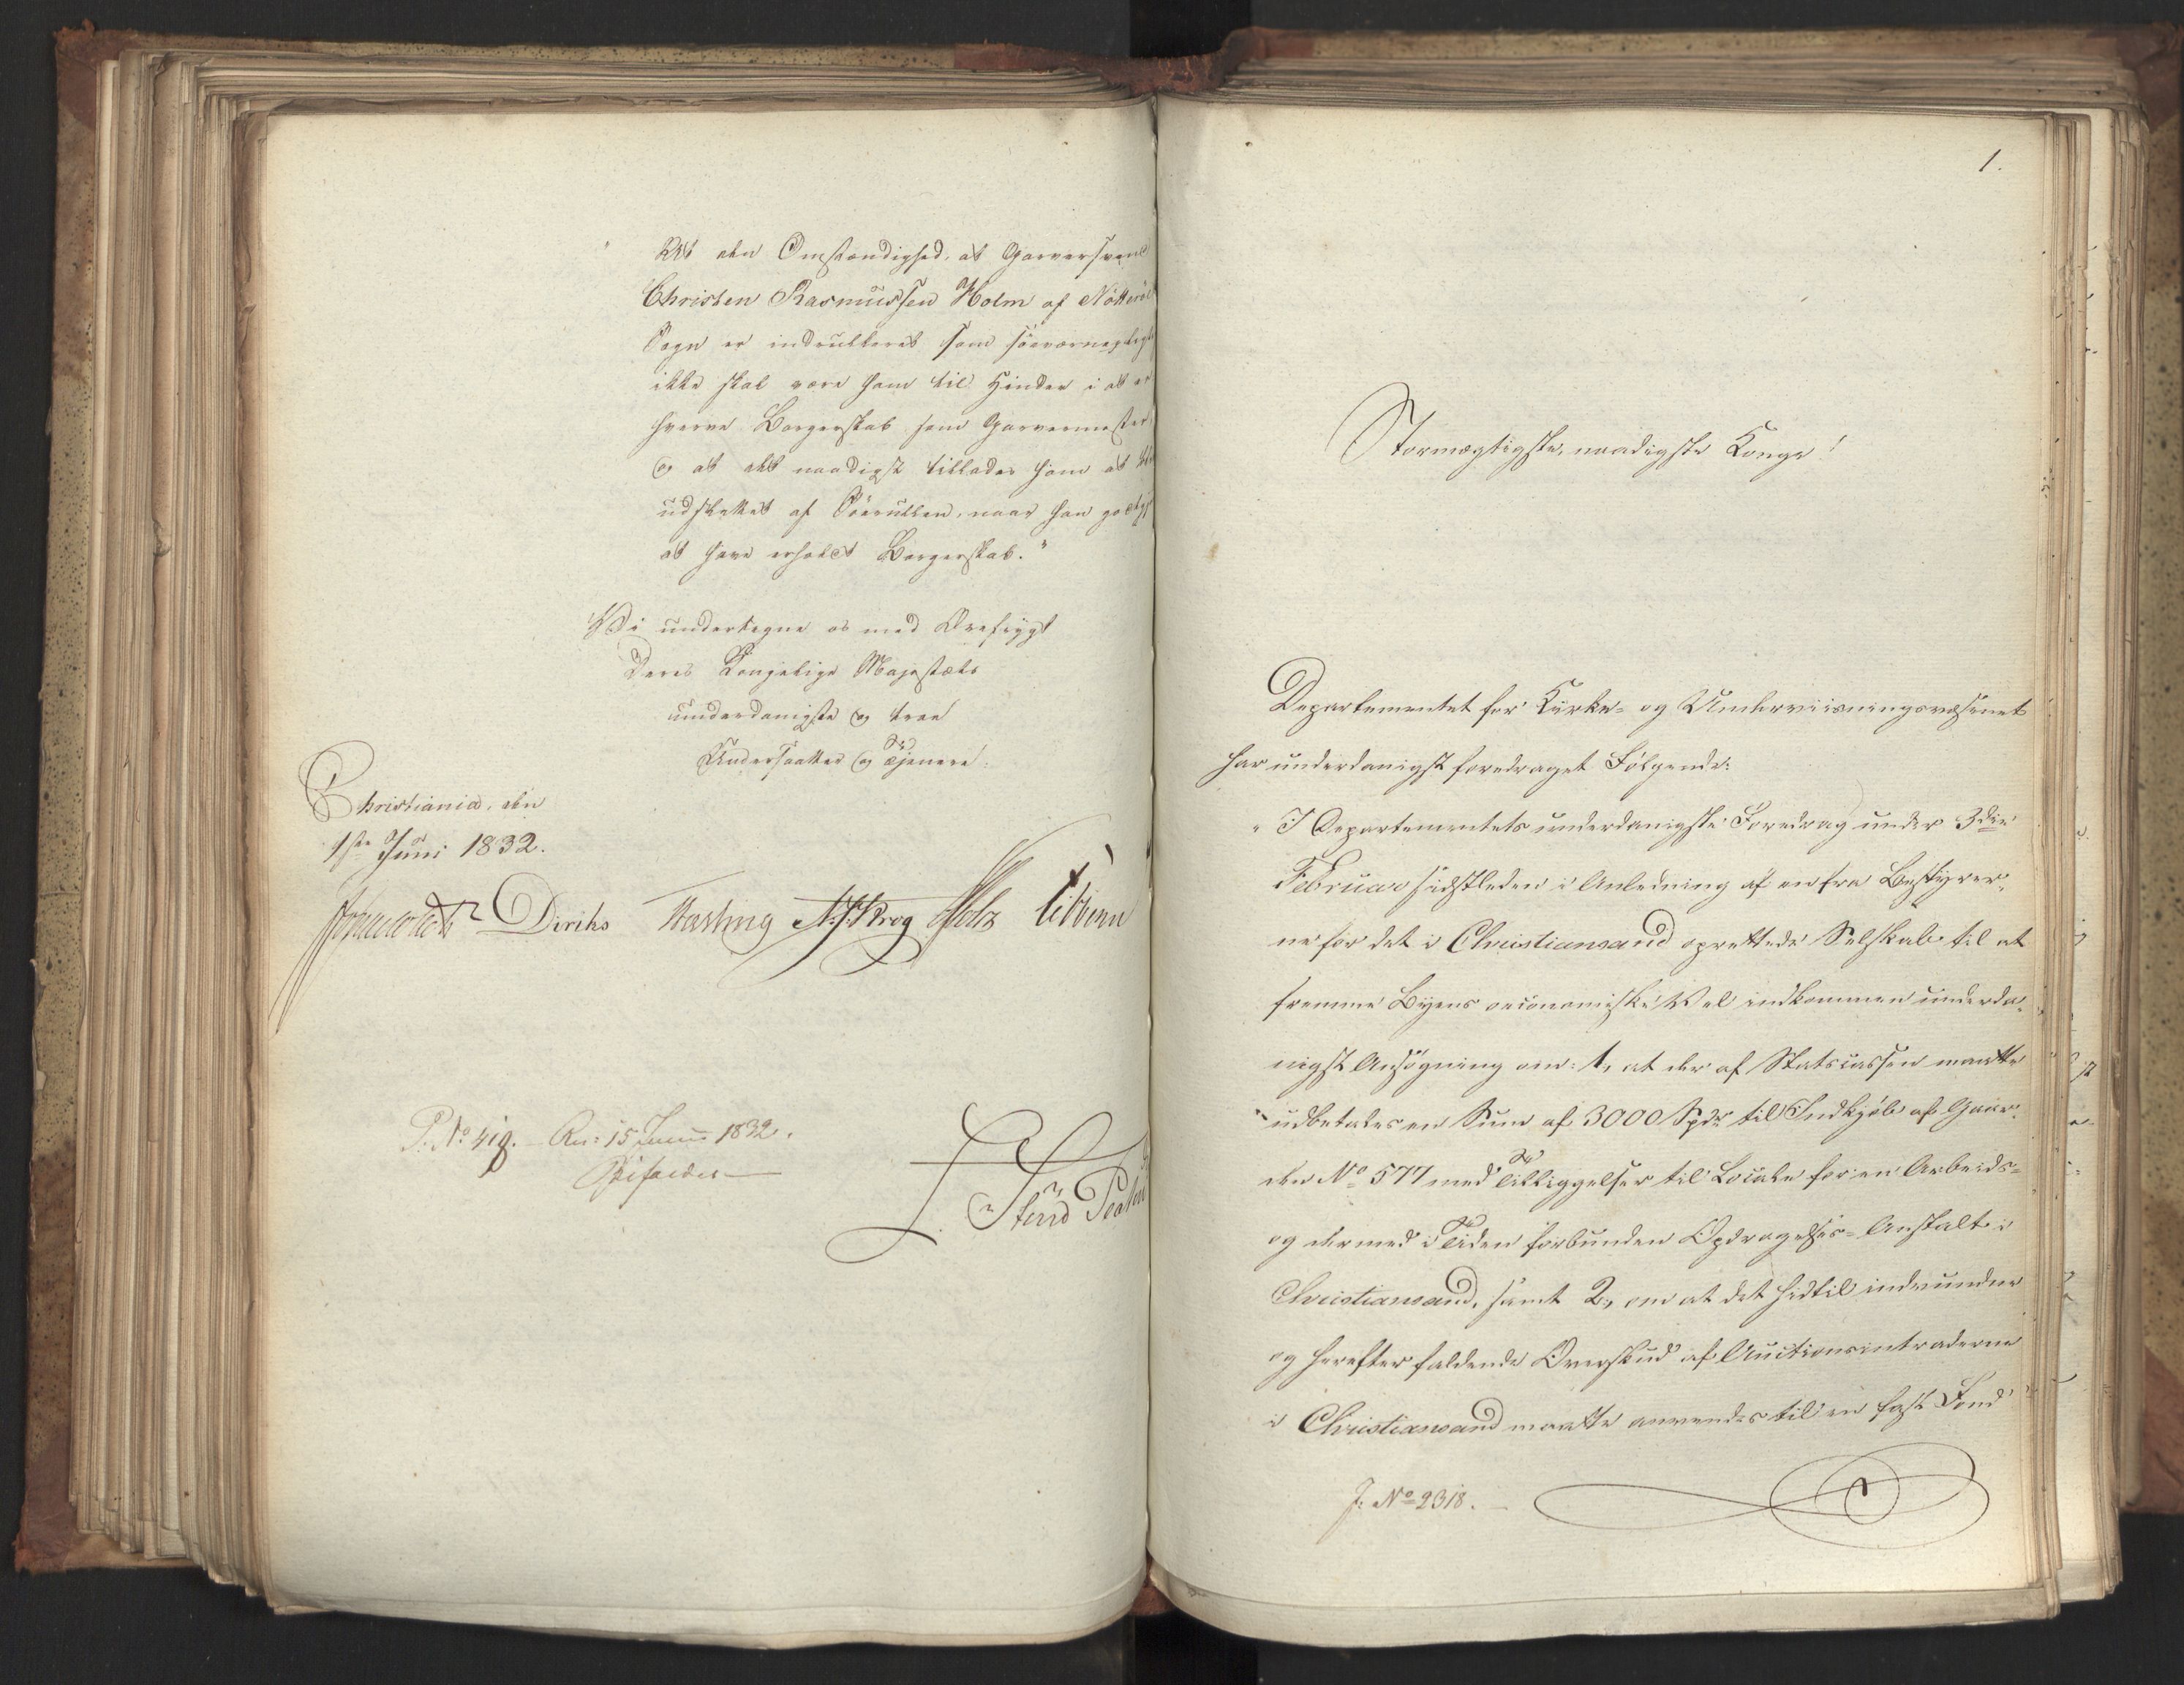 At den Omstændighed, at Garversvend
Christen Rasmussen Holm af Nøtterøe
Sogn er indrulleret som søeværnepligtig
ikke skal være ham til Hinder i at er-
hverve Borgerskab som Garvermester
og at det naadigst tillades ham at blive
udslettet af Søerullen, naar han godtgjør
at have erholdt Borgerskab."
Vi undertegne os med Ærefrygt
Deres Kongelige Majestæts
underdanigste og troe
Undersaatter og Tjenere.
Christiania, den
1ste Juni 1832.
Diriks
N. J. Krog Holst Vibbenn
P. No 419. 15 Juni 1832.
1.
Stormægtigste, naadigste Konge!
Departementet for Kirke- og Underviisningsvæsenet
har underdanigst foredraget Følgende:
"I Departementets underdanigste Foredrag under 3die
Februar sidstleden i Anledning af en fra Bestyrer-
ne for det i Christiansand oprettede Selskab til at
fremme Byens oeconomiske Vel indkommen underda-
nigst Ansøgning om: 1, at der af Statscassen maatte
udbetales en Sum af 3000 Spdr til Indkjøb af Gaar-
den No 577 med Tilliggelser til Locale for en Arbeids-
og dermed i Tiden forbunden Opdragelses-Anstalt i
Christiansand, samt 2, om at det hidtil indvundne
og herefter faldende Overskud af Auctionsintraderne
i Christiansand maatte anvendes til en fast Fond
J. No 2318.